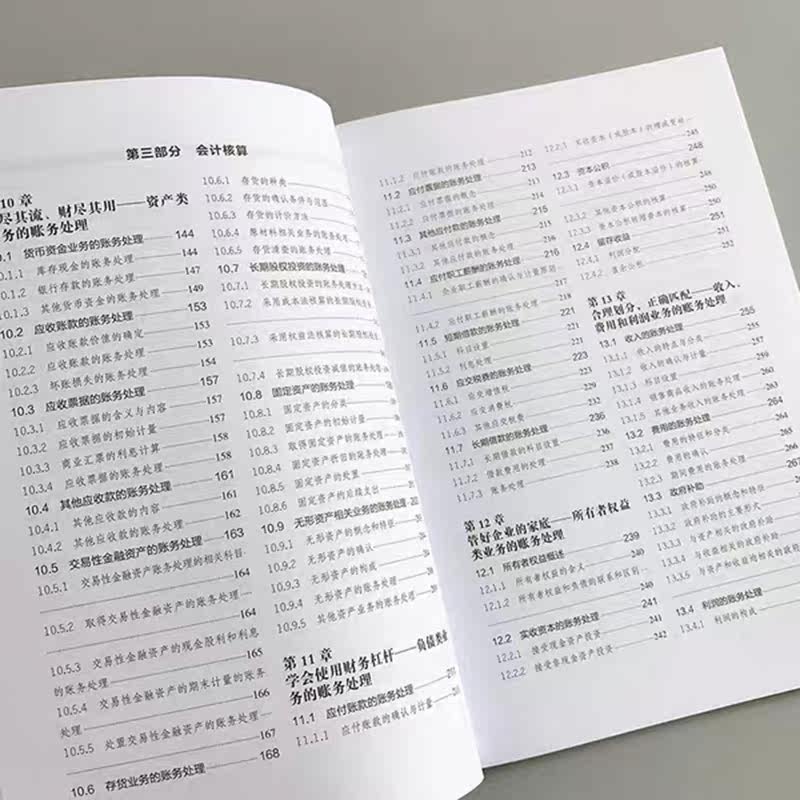 第三部分 会计核算
10章
尽其流、财尽其用——资产类
务的账务处理
.1 货币资金业务的账务处理 144
0.1.1 库存现金的账务处理 144
0.1.2 银行存款的账务处理 147
10.1.3 其他货币资金的账务处理 149
10.2 应收账款的账务处理 153
10.2.1 应收账款价值的确定 153
10.2.2 应收账款的账务处理 154
10.2.3 坏账损失的账务处理 154
10.3 应收票据的账务处理 157
10.3.1 应收票据的含义与内容 157
10.3.2 应收票据的初始计量 158
10.3.3 商业汇票的利息计算 158
10.3.4 应收票据的账务处理 158
10.4 其他应收款的账务处理 161
10.4.1 其他应收款的内容 161
10.4.2 其他应收款的账务处理 162
10.5 交易性金融资产的账务处理 163
10.5.1 交易性金融资产账务处理的相关科目
164
10.5.2 取得交易性金融资产的账务处理
164
10.5.3 交易性金融资产的现金股利和利息
的账务处理 165
10.5.4 交易性金融资产的期末计量的账务
处理 166
10.5.5 处置交易性金融资产的账务处理
167
10.6 存货业务的账务处理 168
10.6.1 存货的种类
10.6.2 存货的确认条件与范围
10.6.3 存货的计价方法
10.6.4 原材料相关业务的账务处理
10.6.5 存货清查的账务处理
10.7 长期股权投资的账务处理
10.7.1 长期股权投资的账务处理方法
10.7.2 采用成本法核算的长期股权投资
10.7.3 采用权益法核算的长期股权投资
10.7.4 长期股权投资减值的账务处理
10.8 固定资产的账务处理
10.8.1 固定资产的分类
10.8.2 固定资产的初始计量
10.8.3 取得固定资产的账务处理
10.8.4 固定资产折旧的账务处理
10.8.5 固定资产的处置
10.8.6 固定资产的后续支出
10.9 无形资产相关业务的账务处理
10.9.1 无形资产的概念和特征
10.9.2 无形资产的确认
10.9.3 无形资产的构成
10.9.4 无形资产的账务处理
10.9.5 其他资产业务的账务处理
第11章
学会使用财务杠杆——负债类业
务的账务处理
11.1 应付账款的账务处理
11.1.1 应付账款的确认与计量
11.1.2 应付账款的账务处理 212
11.2 应付票据的账务处理 213
11.2.1 应付票据的概念
11.2.2 应付票据的账务处理
11.3 其他应付款的账务处理
11.3.1 其他应付款的概念
11.3.2 其他应付款的账务处理
11.4 应付职工薪酬的账务处理
11.4.1 企业职工薪酬的确认与计量原则
11.4.2 应付职工薪酬的账务处理 218
11.5 短期借款的账务处理 221
11.5.1 科目设置 221
11.5.2 利息处理 221
11.6 应交税费的账务处理 223
11.6.1 应交增值税
11.6.2 应交消费税
11.6.3 其他应交税费
11.7 长期借款的账务处理 236
11.7.1 长期借款的科目设置 236
11.7.2 借款费用的处理 237
11.7.3 账务处理 238
第12章
管好企业的家底——所有者权益
类业务的账务处理
12.1 所有者权益概述 239
12.1.1 所有者权益的含义 240
12.1.2 所有者权益和负债的联系和区别
240
12.2 实收资本的账务处理 241
12.2.1 接受现金资产投资 241
12.2.2 接受非现金资产投资 242
12.2.3 实收资本（或股本）的增减变动
245
12.3 资本公积 248
12.3.1 资本溢价（或股本溢价）的核算
12.3.2 其他资本公积的核算
12.3.3 资本公积转增资本的核算
12.4 留存收益
12.4.1 利润分配
12.4.2 盈余公积
第13章
合理划分、正确匹配——收入、
费用和利润业务的账务处理
13.1 收入的账务处理 255
13.1.1 收入的特点与分类
13.1.2 收入的确认与计量
13.1.3 科目设置
13.1.4 销售商品收入的账务处理
13.1.5 其他业务收入的账务处理
13.2 费用的账务处理 264
13.2.1 费用的特征和分类
13.2.2 费用的确认
13.2.3 期间费用的账务处理
13.3 政府补助 267
13.3.1 政府补助的概念和特征
13.3.2 政府补助的主要形式
13.3.3 与资产相关的政府补助
13.3.4 与收益相关的政府补助
13.3.5 与资产和收益相关的政府
13.4 利润的账务处理
13.4.1 利润的构成